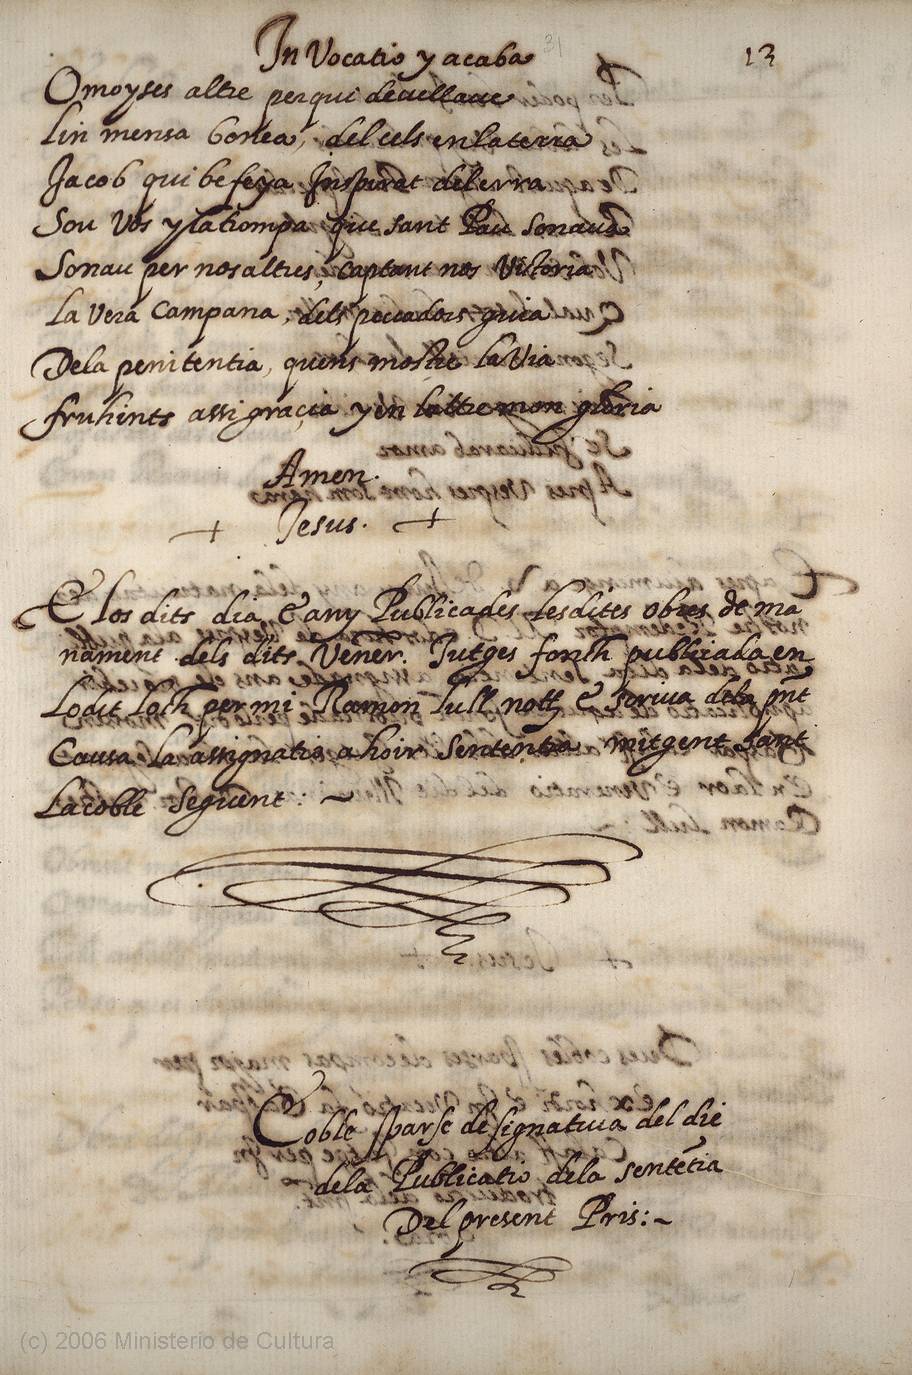 13
31
In Vocatio y acaba
O moyses altre perqui devellave
Lin mensa bonea, del cels en la terra
Jacob qui be feya Inspirat del erra
Sou Vos y la trompa que sant Pau sonava
Sonau per nosaltres, captant nos Victoria
La Vera Campana, dels peccadors guia
Dela penitentia, quens mostre la Via
fruhints assi gracia y en laltre mon gloria
Amen.
+ Jesus. +
E los dits dia, & any Publicades lesdites obres de ma
nament dels dits Vener. Jutges fonch publicada en
Lodit loch per mi Ramon lull noth & scriva dela pnt
Causa la assignatio a hoir Sententia mitgent sant
La coble seguent: ~
Coble sparse de signatura del die
dela Publicatio dela sentētia
Del present Pris: ~
(c) 2006 Ministerio de Cultura